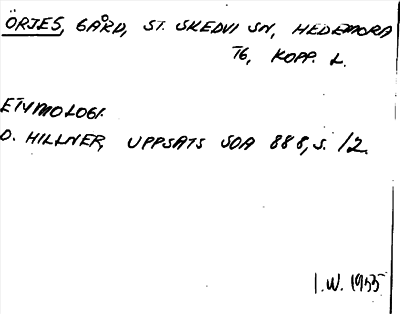 ÖRJES, GÅRD, ST. SKEDVI SN, HEDEMORA
TG, KOPP. L.
ETYMOLOGI.
O. HILLNER, UPPSATS SOA 888, S. 12.
I.W. 1955